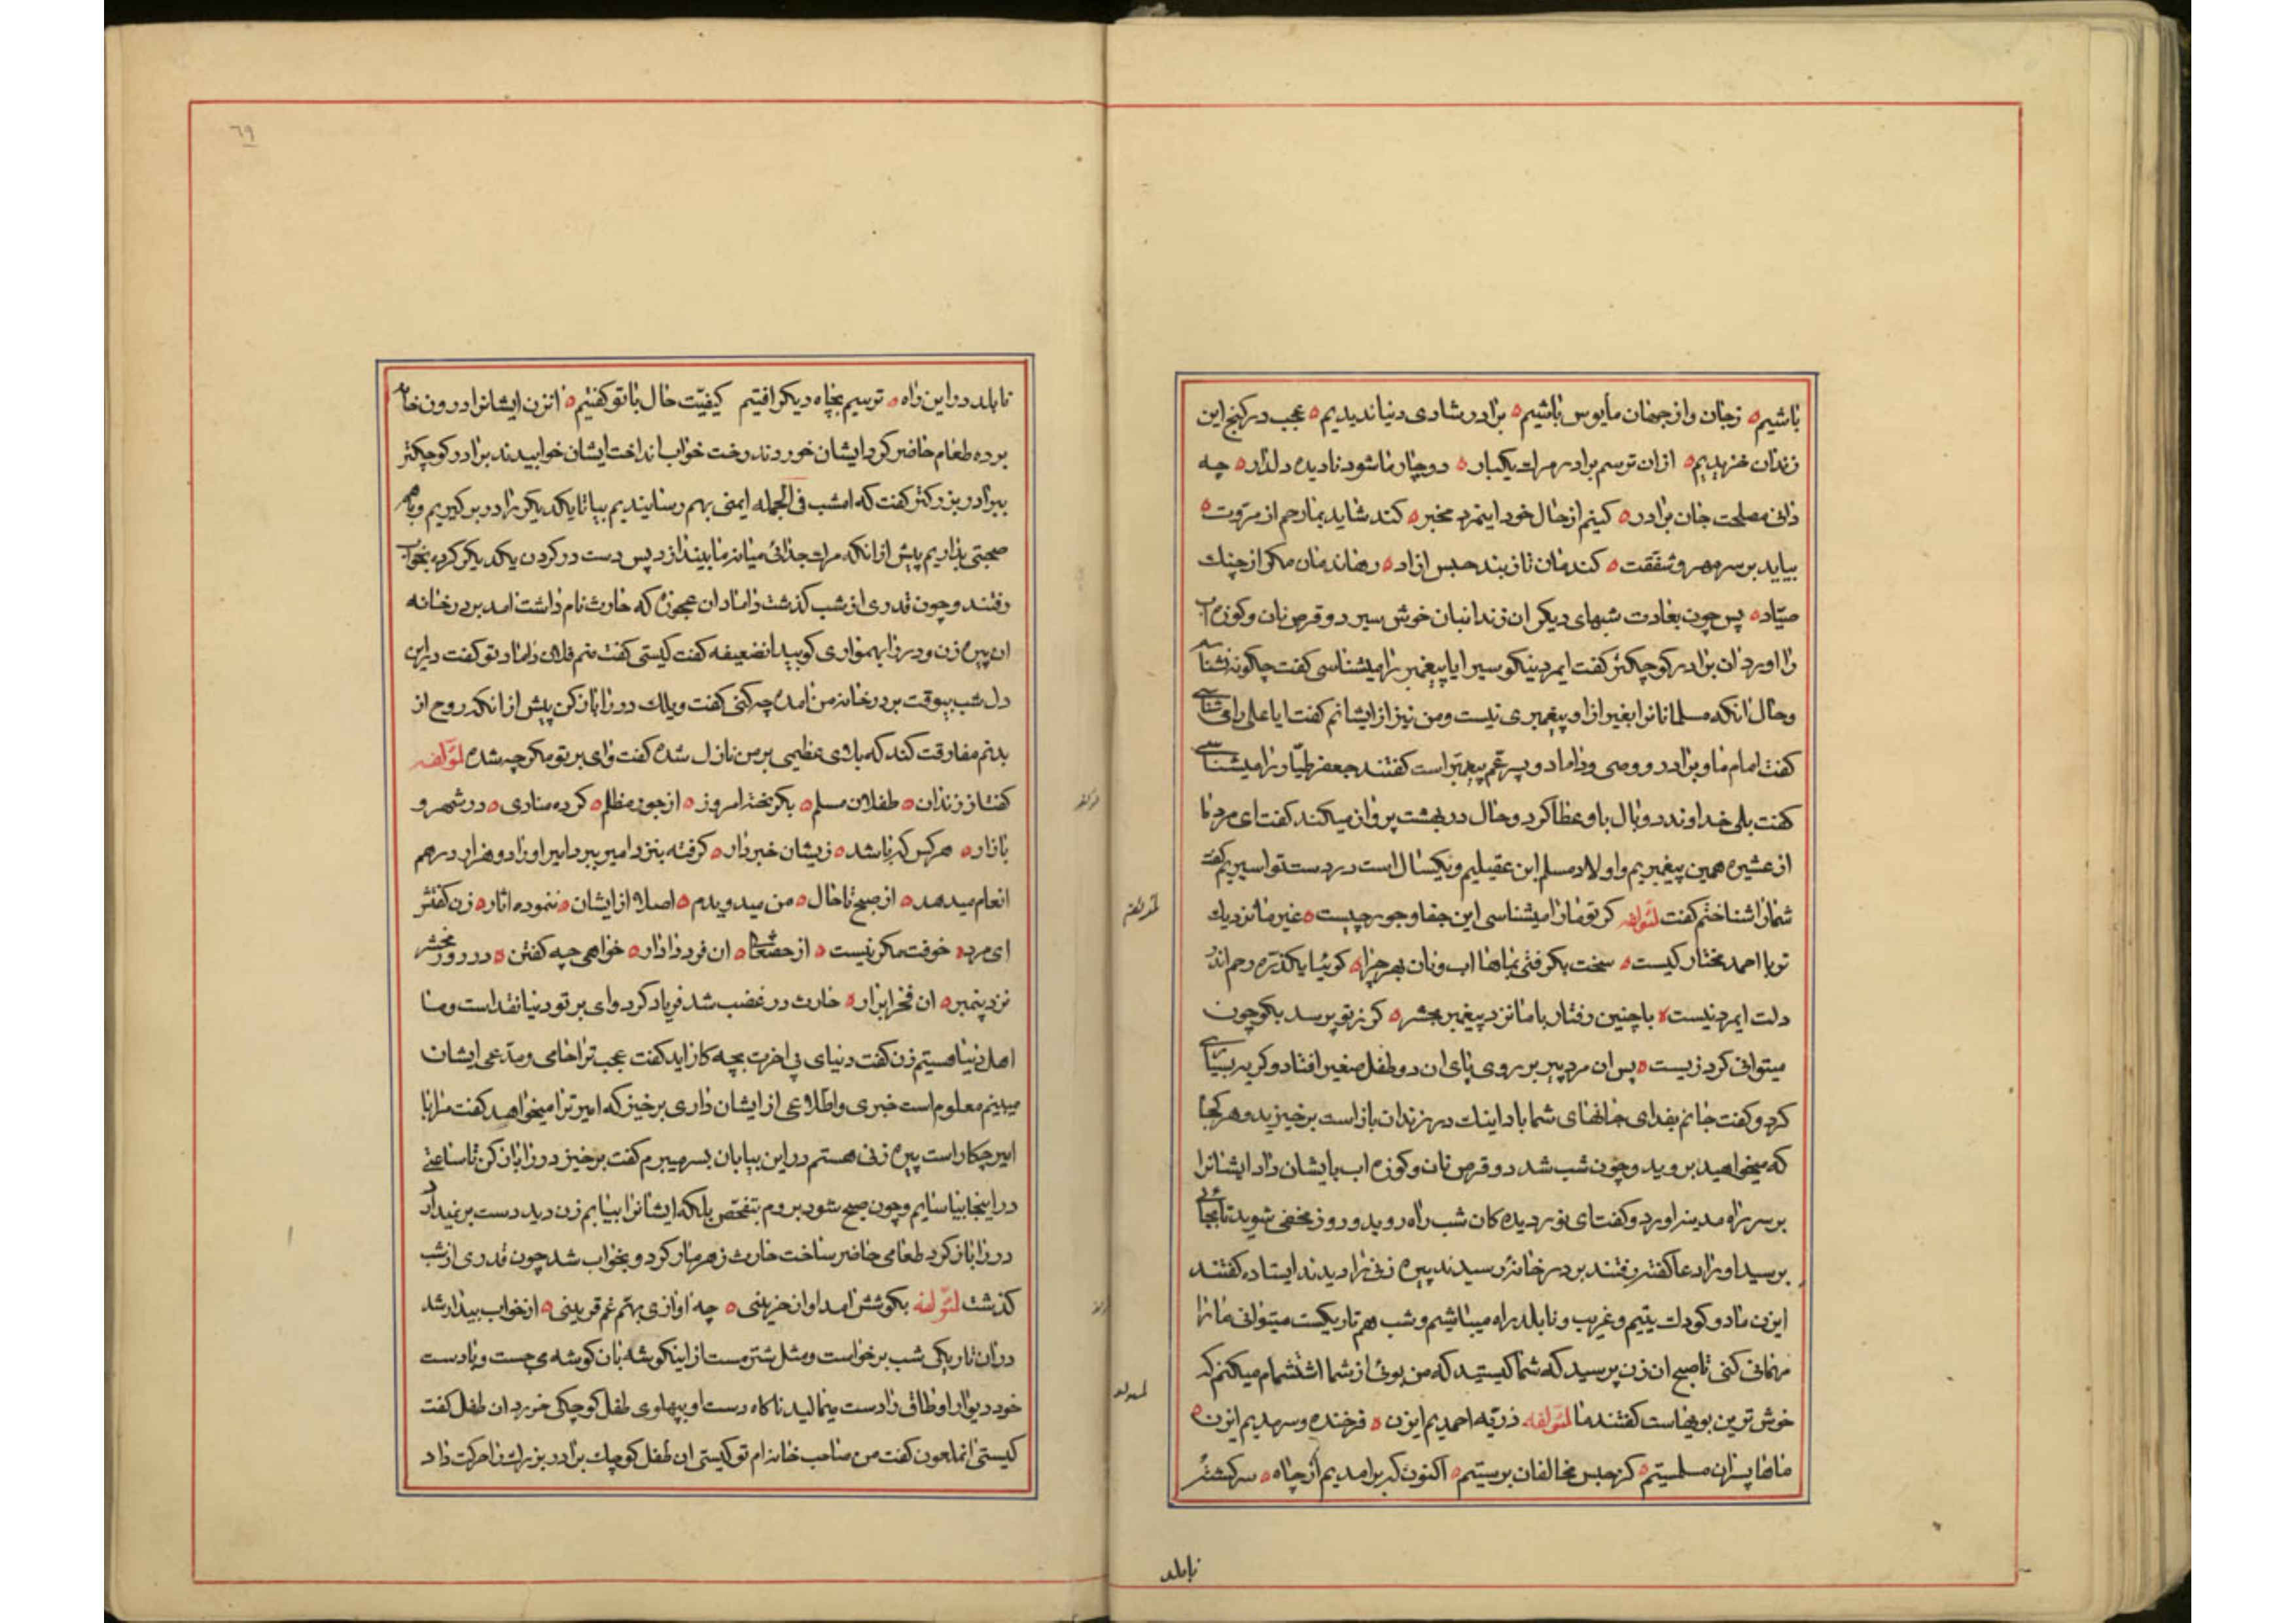 باشیم ه زجان و از جهان مأیوس باشیم ه برادر شادی دنیا ندیدیم ه عجب در کنج این
زندان خزیدیم ه ازان ترسم برادر مرک یکبار ه دوچار ما شود نادیده دلدار ه چه
دانی مصلحت جان برادر ه کنیم از حال خود اینمرد مخبر ه کند شاید بما رحم از مروت ه
بیاید بر سر مهر و شفقت ه کندمان تا ز بند حبس ازاد ه رهاندمان مکر از چنک
صیّاد ه پس چون بعادت شبهای دیکر ان زندانبان خوش سیر دو قرص نان و کوزه اب
را اورد ان برادر کوچکتر کفت ایمرد نیکو سیر ایا پیغمبر را میشناسی کفت چکونه نشناسم
و حال انکه مسلمانانرا بغیر از او پیغمبری نیست و من نیز از ایشانم کفت ایا علی را می شناسی
کفت امام ما و برادر و وصی و داماد و پسر عم پیغمبر است کفتند جعفر طیّار را میشناسی
کفت بلی خداوند دو بال باو عطا کرد و حال در بهشت پرواز میکند کفت ای مرد ما
از عشیره همین پیغمبریم و اولاد مسلم ابن عقیلیم و یکسال است در دست تو اسیریم کفت
شما را شناختم کفت لمؤلفه کر تو ما را میشناسی این جفا و جور چیست ه غیر ما نزدیک
تو با احمد مختار کیست ه سخت بکرفتی بماها اب و نان بهر چرا ه کوئیا یکذره رحم اندر
دلت ایمرد نیست ه با چنین رفتار با ما نزد پیغمبر بحشر ه کر ز تو پرسد بکو چون
میتوانی کرد زیست ه پس ان مرد پیر بر روی پای ان دو طفل صغیر افتاد و کریه بسیاری
کرد و کفت جانم بفدای جانهای شما باد اینک در زندان باز است برخیزید و هر کجا
که میخواهید بروید و چون شب شد دو قرص نان و کوزه اب بایشان داد ایشانرا
بر سر راه مدینه اورد و کفت ای نور دیده کان شب راه روید و روز مخفی شوید تا بجائی
برسید او را دعا کفته رفتند بر در خانهٔ رسیدند پیره زنی را دیدند ایستاده کفتند
ایزن ما دو کودک یتیم و غریب و نابلد راه میباشیم و شب هم تاریکست میتوانی ما را
مهمانی کنی تا صبح ان زن پرسید که شما کیستید که من بوئی از شما اشتشمام میکنم که
خوش ترین بویهاست کفتند ما لمؤلفه ذریّه احمدیم ایزن ه فرخنده و سرمدیم ایزن ه
ماها پسران مسلمستیم ه کز حبس مخالفان برستیم ه اکنون که برامدیم از چاه ه سرکشته
نابلد
نابلد در این راه ه ترسیم بچاه دیکر افتیم کیفیّت حال با تو کفتیم ه انزن ایشانرا درون خانه
برده طعام حاضر کرد ایشان خوردند رخت خواب انداخت ایشان خوابیدند برادر کوچکتر
ببرادر بزرکتر کفت که امشب فی الجمله ایمنی بهم رسانیدیم بیا تا یکدیکر را در بر کیریم و با هم
صحبتی بداریم پیش از انکه مرک جدائی میانه ما بیندازد پس دست در کردن یکدیکر کرده بخواب
رفتند و چون قدری از شب کذشت داماد ان عجوزه که حارث نام داشت امد بدر خانه
ان پیره زن و در را بهمواری کوبید انضعیفه کفت کیستی کفت منم فلان داماد تو کفت در این
دل شب بیوقت بر در خانه من امده چه کنی کفت ویلک در را باز کن پیش از انکه روح از
بدنم مفارقت کند که بلای عظیمی بر من نازل شده کفت وای بر تو مکر چه شده لمؤلفه
کفتا ز زندان ه طفلان مسلم ه بکریخته امروز ه از جور ظالم ه کرده منادی ه در شهر و
بازار ه هر کس که باشد ه زیشان خبردار ه کرفته بنزد امیر ببرد امیر او را دو هزار درهم
انعام میدهد ه از صبح تا حال ه من میدویدم ه اصلا از ایشان ه ننموده اثار ه زن کفتش
ای مرد ه خوفت مکر نیست ه از حضتعالی ه ان فرد دادار ه خواهی چه کفتن ه در روز محشر
نزد پیمبر ه ان فخر ابرار ه حارث در غضب شد فریاد کرد وای بر تو دنیا نقد است و ما
اهل دنیا هستیم زن کفت دنیای بی اخرت بچه کار اید کفت عجب ترا حامی و مدعی ایشان
میبینم معلوم است خبری و اطلاعی از ایشان داری برخیز که امیر ترا میخواهد کفت مرا با
امیر چکار است پیره زنی هستم در این بیابان بسر میبرم کفت برخیز در را باز کن تا ساعتی
در اینجا بیاسایم و چون صبح شود بروم بتفحّص بلکه ایشانرا بیابم زن دید دست بر نمیدارد
در را باز کرد طعامی حاضر ساخت حارث زهرمار کرد و بخواب شد چون قدری از شب
کذشت لمؤلفه بکوشش امد اواز حزینی ه چه اوازی بهم غم قرینی ه از خواب بیدار شد
در ان تاریکی شب برخواست و مثل شتر مست از اینکوشه بان کوشه می جست و با دست
خود دیوار اوطاق را دست میمالید ناکاه دست او بپهلوی طفل کوچکی خورد ان طفل کفت
کیستی انملعون کفت من صاحب خانه ام تو کیستی ان طفل کوچک برادر بزرک را حرکت داد
٦٩